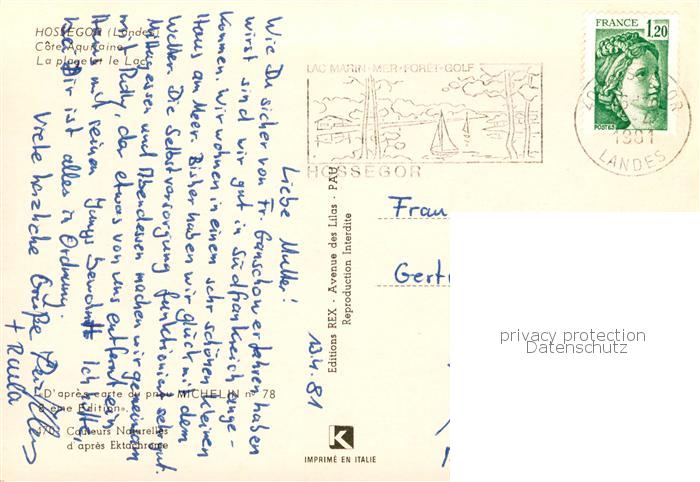 HOSSEGOR (Landes)
Côte Aquitaine
La plage et le Lac
FRANCE
1,20
POSTES
LAC MARIN-MER-FORÊT-GOLF
HOSSEGOR
1981
LANDES
13.4.81
Liebe Mutter!
Wie Du sicher von Fr. erfahren haben
wirst sind wir gut in Südfrankreich ange-
kommen. Wir wohnen in einem sehr schönen kleinen
Haus am Meer. Bisher haben wir Glück mit dem
Wetter. Die Selbstversorgung funktioniert sehr gut.
Mittagessen und Abendessen machen wir gemeinsam
mit Rudy, der etwas von uns entfernt ein
Haus mit seinen Jungs bewohnt. Ich hoffe,
bei Dir ist alles in Ordnung.
Viele herzliche Grüße
+ Paula
Frau
Gert
Editions REX - Avenue des Lilas - PAU
Reproduction Interdite
privacy protection
Datenschutz
«D'après carte du pneu MICHELIN n° 78
ème Edition».
Couleurs Naturelles
d'après Ektachrome
K
IMPRIMÉ EN ITALIE